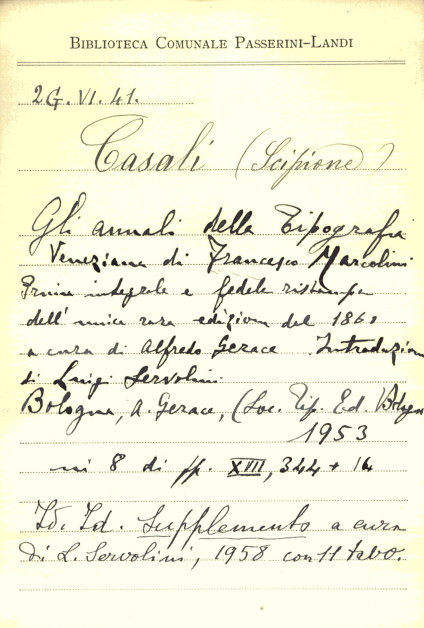 BIBLIOTECA COMUNALE PASSERINI-LANDI
2G. VI. 41.
Casali (Scipione)
Gli annali della Tipografia
Veneziana di Francesco Marcolini
Prima integrale e fedele ristampa
dell'unica rara edizione del 1861
a cura di Alfredo Gerace Introduzione
di Luigi Servolini
Bologna, A. Gerace, (Soc. Tip. Ed.
1953
in 8 di pp. XVII, 344 + 14
Id. Id. Supplemento a cura
di L. Servolini, 1958 con 11 tavo.